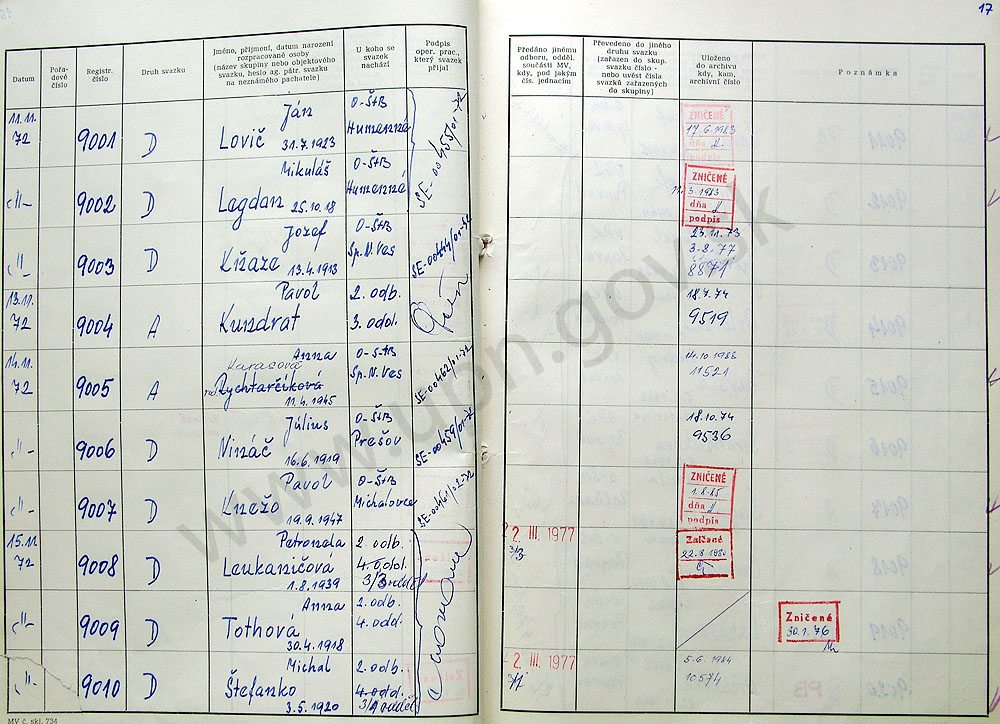 17
Datum
Pořa-
dové
číslo
Registr.
číslo
Druh svazku
Jméno, příjmení, datum narození
rozpracované osoby
(název skupiny nebo objektového
svazku, heslo ag. pátr. svazku
na neznámého pachatele)
U koho se
svazek
nachází
Podpis
oper. prac.,
který svazek
přijal
Předáno jinému
odboru, odděl.
součásti MV,
kdy, pod jakým
čís. jednacím
Převedeno do jiného
druhu svazku
(zařazen do skup.
svazku číslo -
nebo uvést čísla
svazků zařazených
do skupiny)
Uloženo
do archivu
kdy, kam,
archivní číslo
Poznámka
11.11. 72 9001 D Ján Lovič 31.7.1923 O-ŠtB Humenné SE-00455/01-72
ZNIČENÉ 17.6.1983 dňa podpis
-„- 9002 D Mikuláš Lagdan 25.10.18 O-ŠtB Humenné
ZNIČENÉ 3.1983 dňa podpis
-„- 9003 D Jozef Križaze 13.4.1913 O-ŠtB Sp.N.Ves
23.11.73
3-8.77
8871
13.11. 72 9004 A Pavol Kundrat 2. odb. 3. odd.
18.4.74
9519
14.11. 72 9005 A Anna Karasová Rychtarčíková 11.4.1945 O-ŠtB Sp.N.Ves SE-00462/01-72
14.10.1988
11521
-„- 9006 D Július Nináč 16.6.1919 O-ŠtB Prešov SE-00459/01-72
18.10.74
9536
-„- 9007 D Pavol Knežo 19.9.1947 O-ŠtB Michalovce
ZNIČENÉ 1.8.85 dňa podpis
15.11. 72 9008 D Petronela Leukaničová 1.8.1939 2. odb. 4. odd.
2 III. 1977
3/3
Zničené 22.8.1980
-„- 9009 D Anna Tothová 30.4.1918 2. odb. 4. odd.
Zničené 30.1.76
-„- 9010 D Michal Štefanko 3.5.1920 2. odb. 4. odd.
2 III. 1977
3/1
5.6.1984
10574
MV č. skl. 734
www.upn.gov.sk